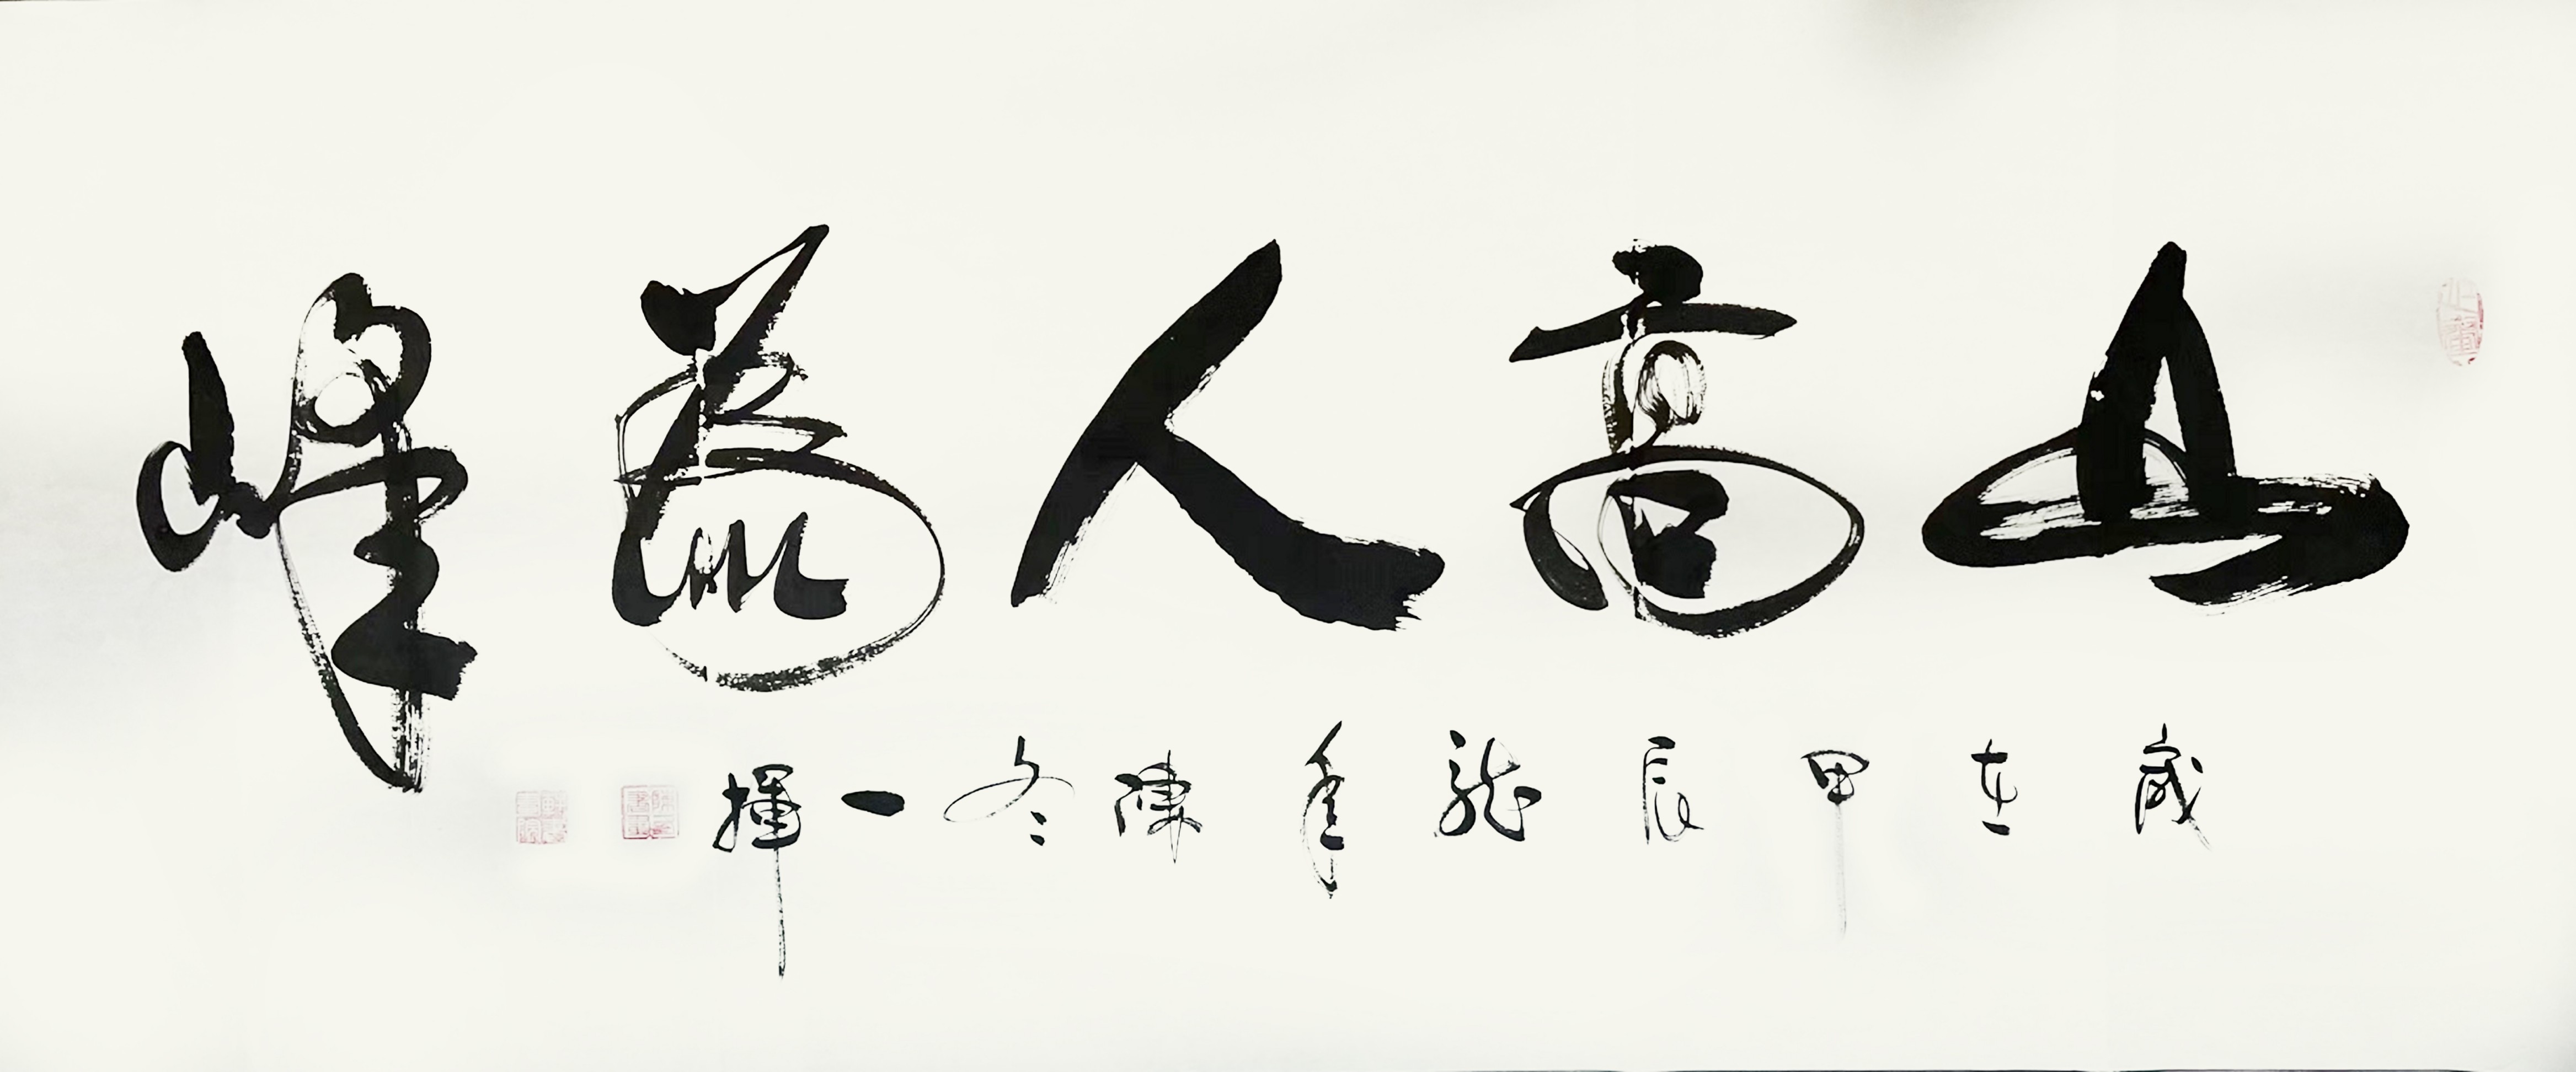 山高人為峰
歲在甲辰龍年陳冬一揮